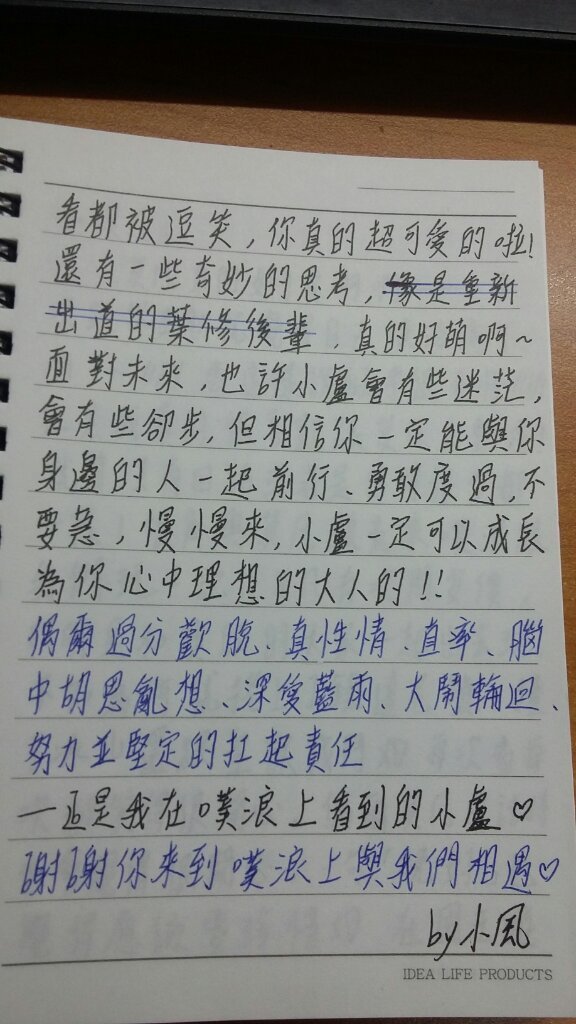 看都被逗笑，你真的超可愛的啦!
還有一些奇妙的思考，像是重新
出道的葉修後輩，真的好萌啊~
面對未來，也許小盧會有些迷茫，
會有些卻步，但相信你一定能與你
身邊的人一起前行、勇敢度過，不
要急，慢慢來，小盧一定可以成長
為你心中理想的大人的!!
偶爾過分歡脫、真性情、直率、腦
中胡思亂想、深愛藍雨、大鬧輪迴、
努力並堅定的扛起責任
—這是我在噗浪上看到的小盧♡
謝謝你來到噗浪上與我們相遇♡
by小風
IDEA LIFE PRODUCTS